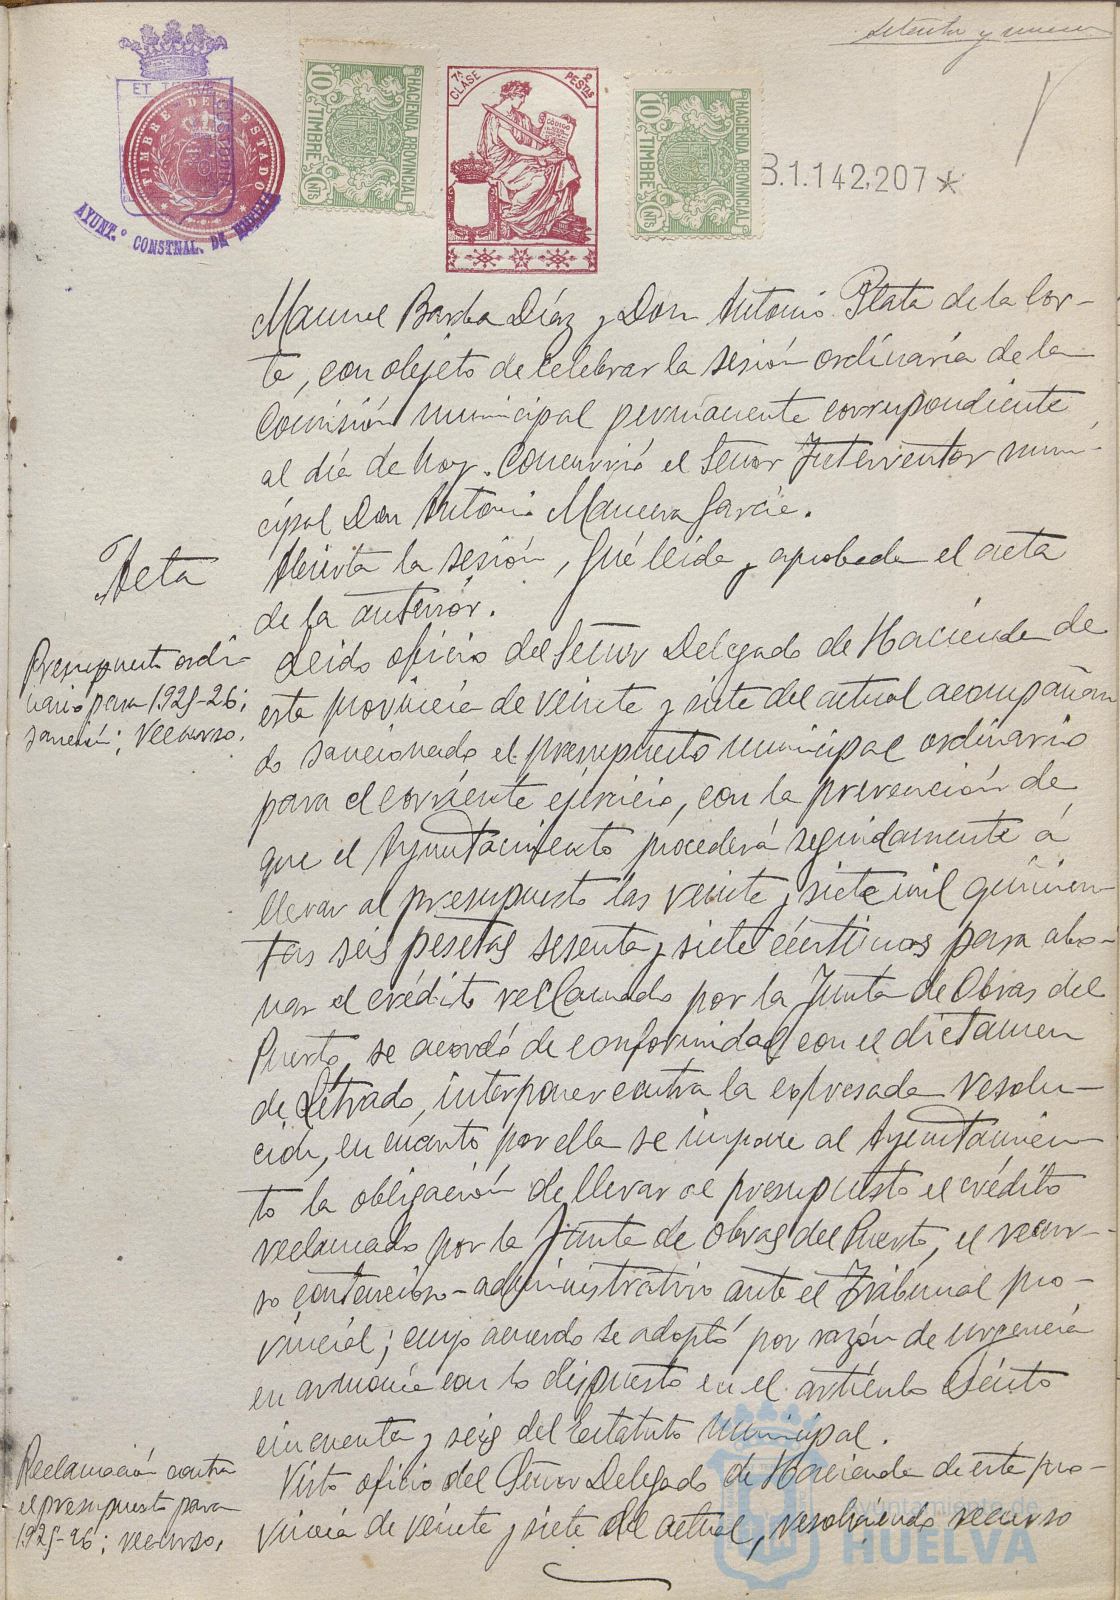 setenta y nueve
ET TERRÆ
TIMBRE DEL ESTADO
AYUNT.º CONSTNAL. DE HUELVA
HACIENDA PROVINCIAL
10 TIMBRE 10 CNTS
7ª CLASE 2 PESTAS
CODIGO
HACIENDA PROVINCIAL
10 TIMBRE 10 CNTS
B.1.142,207 *
Manuel Barba Díaz y Don Antonio Plata de la Cor-
te, con objeto de celebrar la sesión ordinaria de la
Comisión municipal permanente correspondiente
al día de hoy. Concurrió el Señor Interventor muni-
cipal Don Antonio Mancera García.
Acta
Abierta la sesión, fué leida y aprobada el acta
de la anterior.
Presupuesto ordi-
nario para 1925-26;
sanción; recurso.
Leido oficio del Señor Delegado de Hacienda de
esta provincia de veinte y siete del actual acompañan
do sancionado el presupuesto municipal ordinario
para el corriente ejercicio, con la prevención de
que el Ayuntamiento procederá seguidamente á
llevar al presupuesto las veinte y siete mil quinien-
tas seis pesetas sesenta y siete céntimos para abo-
nar el crédito reclamado por la Junta de Obras del
Puerto, se acordó de conformidad con el dictamen
de Letrado, interponer contra la expresada resolu-
ción, en cuanto por ella se impone al Ayuntamien-
to la obligación de llevar al presupuesto el crédito
reclamado por la Junta de Obras del Puerto, el recur-
so contencioso-administrativo ante el Tribunal pro-
vincial; cuyo acuerdo se adoptó por razón de urgencia
en armonía con lo dispuesto en el artículo ciento
cincuenta y seis del Estatuto Municipal.
Reclamación contra
el presupuesto para
1925-26; recurso.
Visto oficio del Señor Delegado de Hacienda de esta pro-
vincia de veinte y siete del actual, resolviendo recurso
Ayuntamiento de
HUELVA